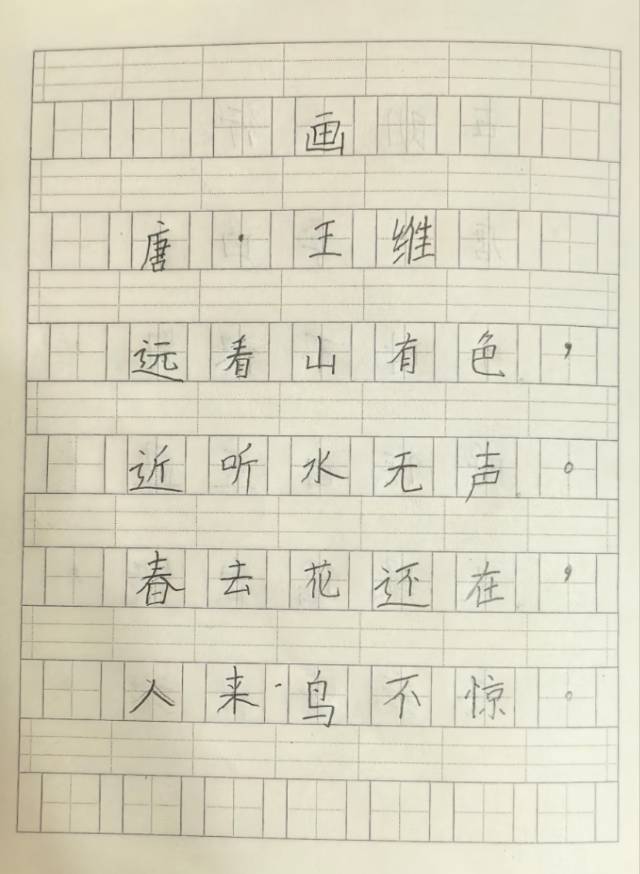 画
唐·王维
远看山有色，
近听水无声。
春去花还在，
人来鸟不惊。